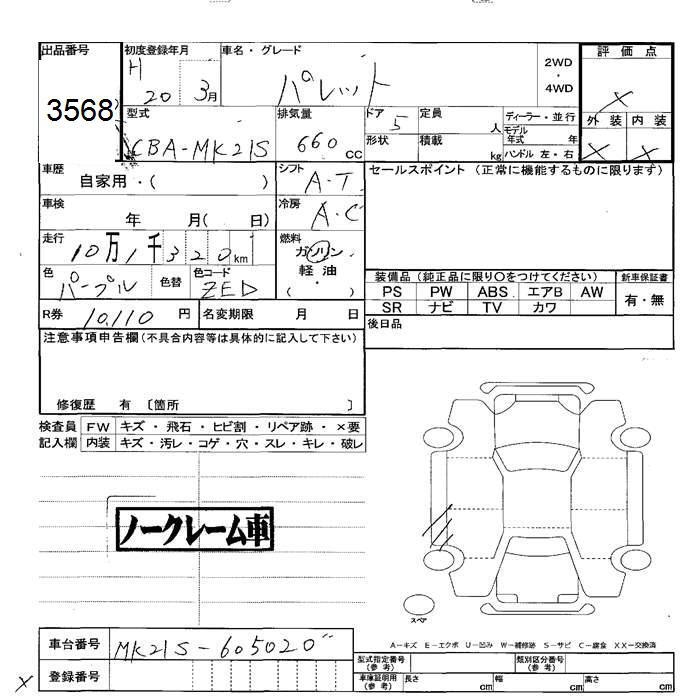 出品番号 初度登録年月 車名・グレード 2WD・4WD 評価点
H 20 3月 パレット ×
3568 型式 排気量 ドア 5 定員 人 ディーラー・並行 外装 内装
CBA-MK21S 660 cc 形状 積載 kg モデル年式 年 ハンドル 左・右 × ×
車歴 自家用・( ) シフト A・T セールスポイント (正常に機能するものに限ります)
車検 年 月( 日) 冷房 A・C
走行 10万1千320km 燃料 ガソリン
色 パープル 色替 色コード ZED 軽油・( )
装備品 (純正品に限り○をつけてください) 新車保証書
PS PW ABS エアB AW 有・無
SR ナビ TV カワ
R券 10,110 円 名変期限 月 日 後日品
注意事項申告欄 (不具合内容等は具体的に記入して下さい)
修復歴 有 〔箇所 〕
検査員 FW キズ・飛石・ヒビ割・リペア跡・×要
記入欄 内装 キズ・汚レ・コゲ・穴・スレ・キレ・破レ
ノークレーム車
スペア
A-キズ E-エクボ U-凹み W-補修跡 S-サビ C-腐食 XX-交換済
車台番号 MK21S-605020
登録番号
型式指定番号 (参考) 類別区分番号 (参考)
車庫証明用 (参考) 長さ cm 幅 cm 高さ cm
×